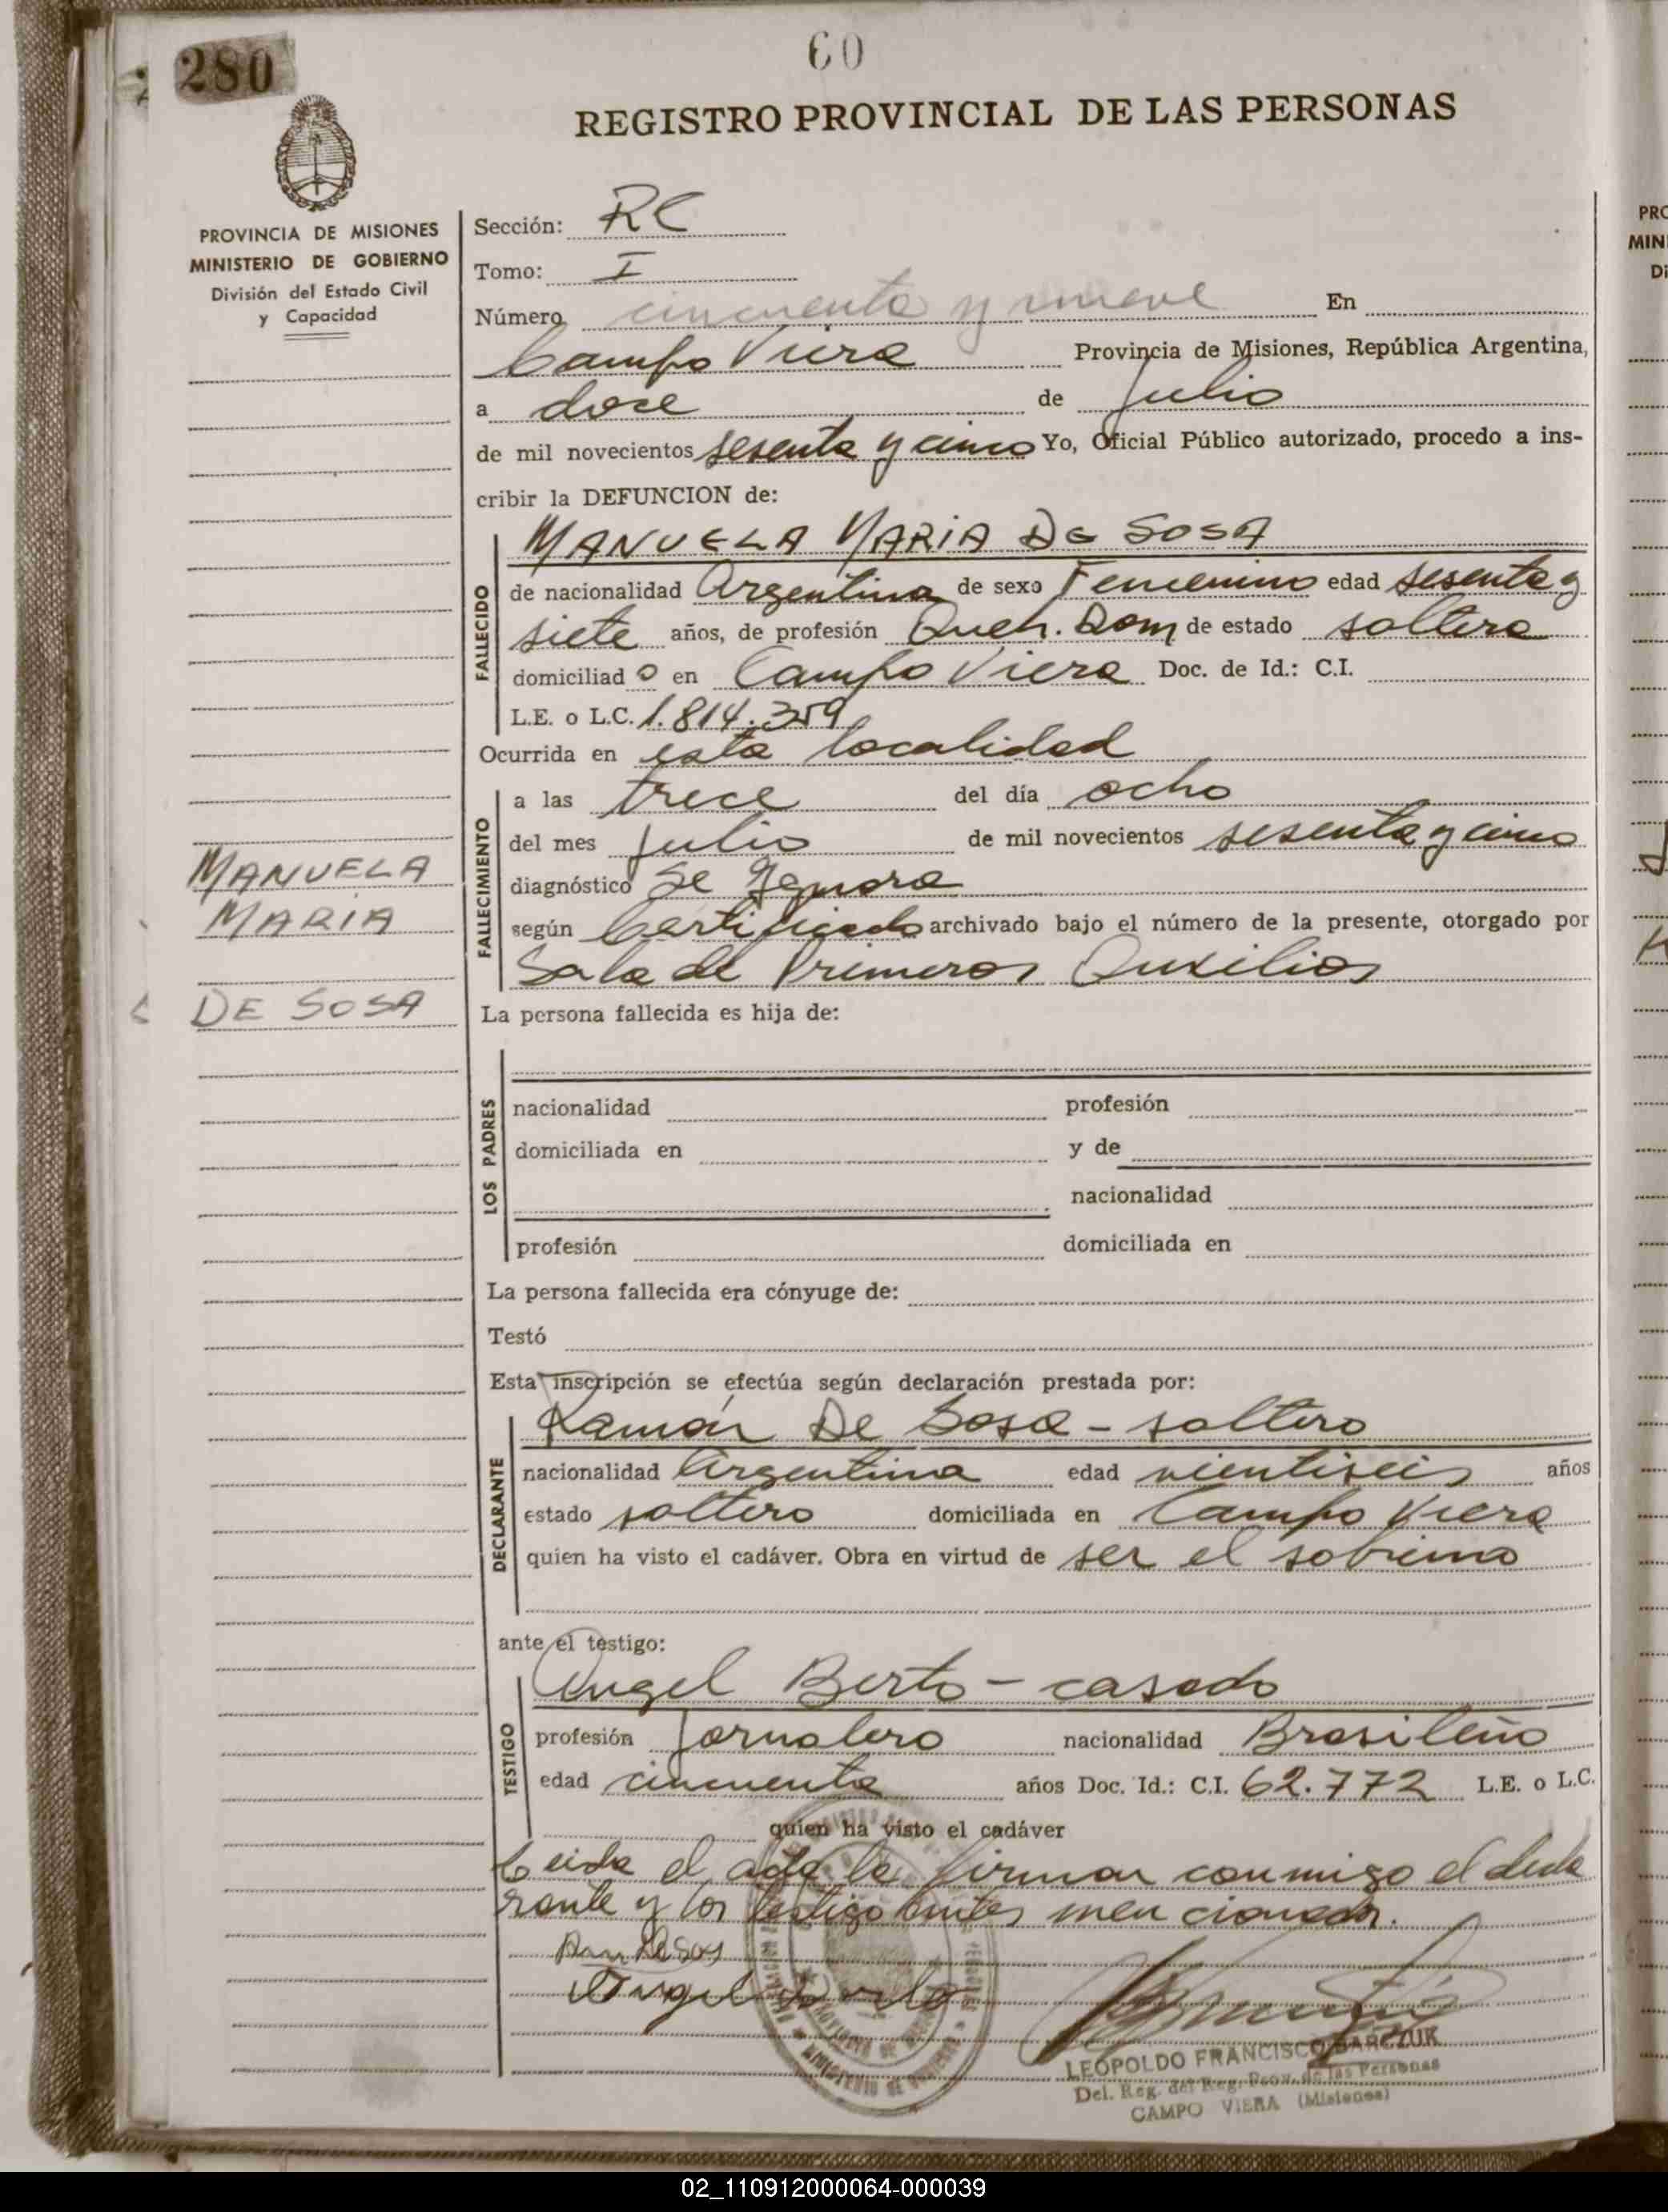 280
60
REGISTRO PROVINCIAL DE LAS PERSONAS
PROVINCIA DE MISIONES
MINISTERIO DE GOBIERNO
División del Estado Civil
y Capacidad
Sección: RC
Tomo: I
Número cincuenta y nueve En
Campo Viera Provincia de Misiones, República Argentina,
a doce de Julio
de mil novecientos sesenta y cinco Yo, Oficial Público autorizado, procedo a ins-
cribir la DEFUNCION de:
MANUELA MARIA DE SOSA
FALLECIDO
de nacionalidad Argentina de sexo Femenino edad sesenta y
siete años, de profesión Queh. Dom de estado soltera
domiciliad o en Campo Viera Doc. de Id.: C.I.
L.E. o L.C. 1.814.359
Ocurrida en esta localidad
FALLECIMIENTO
a las trece del día ocho
del mes Julio de mil novecientos sesenta y cinco
diagnóstico Se Ignora
según Certificado archivado bajo el número de la presente, otorgado por
Sala de Primeros Auxilios
MANUELA
MARIA
DE SOSA
La persona fallecida es hija de:
LOS PADRES
nacionalidad profesión
domiciliada en y de
nacionalidad
profesión domiciliada en
La persona fallecida era cónyuge de:
Testó
Esta inscripción se efectúa según declaración prestada por:
DECLARANTE
Ramón De Sosa - soltero
nacionalidad Argentina edad vientiseis años
estado soltero domiciliada en Campo Viera
quien ha visto el cadáver. Obra en virtud de ser el sobrino
ante el testigo:
TESTIGO
Angel Berto - casado
profesión Jornalero nacionalidad Brasileño
edad cincuenta años Doc. Id.: C.I. 62.772 L.E. o L.C.
quien ha visto el cadáver
Leida el acta la firman conmigo el decla
rante y los testigo antes mencionados.
LEOPOLDO FRANCISCO BARCZUK
Del. Reg. del Reg. Prov. de las Personas
CAMPO VIERA (Misiones)
02_110912000064-000039